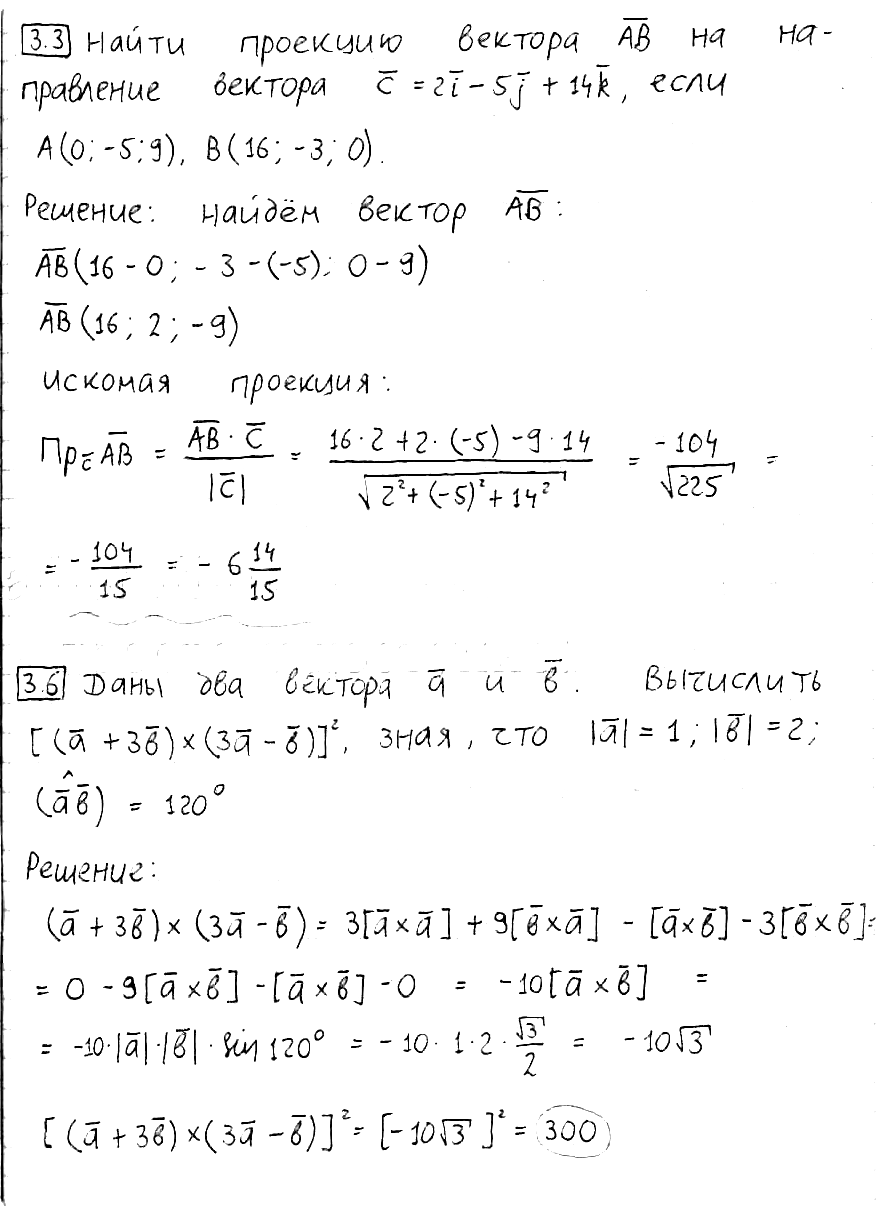 3.3 Найти проекцию вектора A̅B̅ на на-
правление вектора c̅ = 2i̅ − 5j̅ + 14k̅, если
A(0; −5; 9), B(16; −3; 0).
Решение: найдём вектор A̅B̅:
A̅B̅(16 − 0; − 3 − (−5); 0 − 9)
A̅B̅(16; 2; −9)
искомая проекция:
Пр_c̅ A̅B̅ = (A̅B̅ · c̅)/|c̅| = (16 · 2 + 2 · (−5) − 9 · 14)/√(2² + (−5)² + 14²) = −104/√225 =
= − 104/15 = − 6 14/15
3.6 Даны два вектора a̅ и b̅. Вычислить
[(a̅ + 3b̅) × (3a̅ − b̅)]², зная, что |a̅| = 1; |b̅| = 2;
(a̅^b̅) = 120°
Решение:
(a̅ + 3b̅) × (3a̅ − b̅) = 3[a̅ × a̅] + 9[b̅ × a̅] − [a̅ × b̅] − 3[b̅ × b̅] =
= 0 − 9[a̅ × b̅] − [a̅ × b̅] − 0 = −10[a̅ × b̅] =
= −10 · |a̅| · |b̅| · sin 120° = − 10 · 1 · 2 · √3/2 = − 10√3
[(a̅ + 3b̅) × (3a̅ − b̅)]² = [−10√3]² = 300